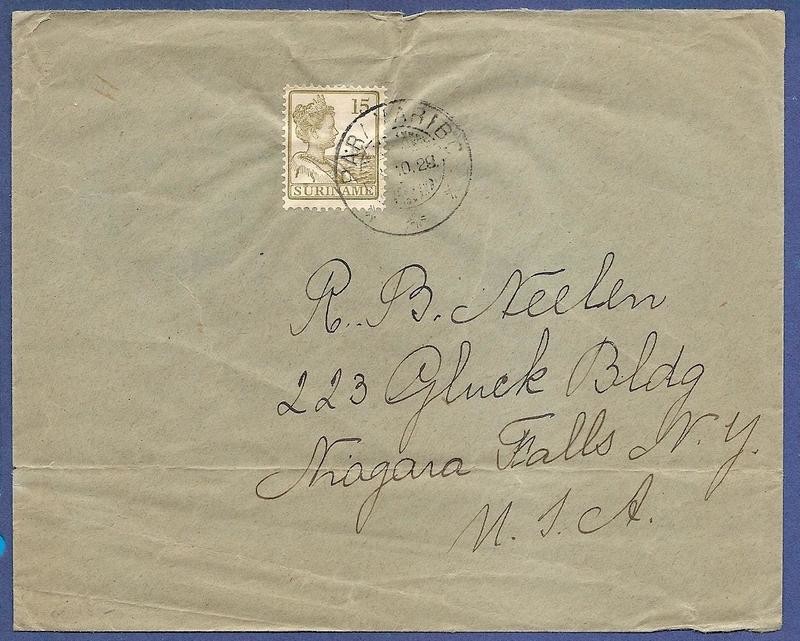 15
SURINAME
PARAMARIBO
10.28.
R. B. Neelen
223 Gluck Bldg
Niagara Falls N. Y.
U. S. A.